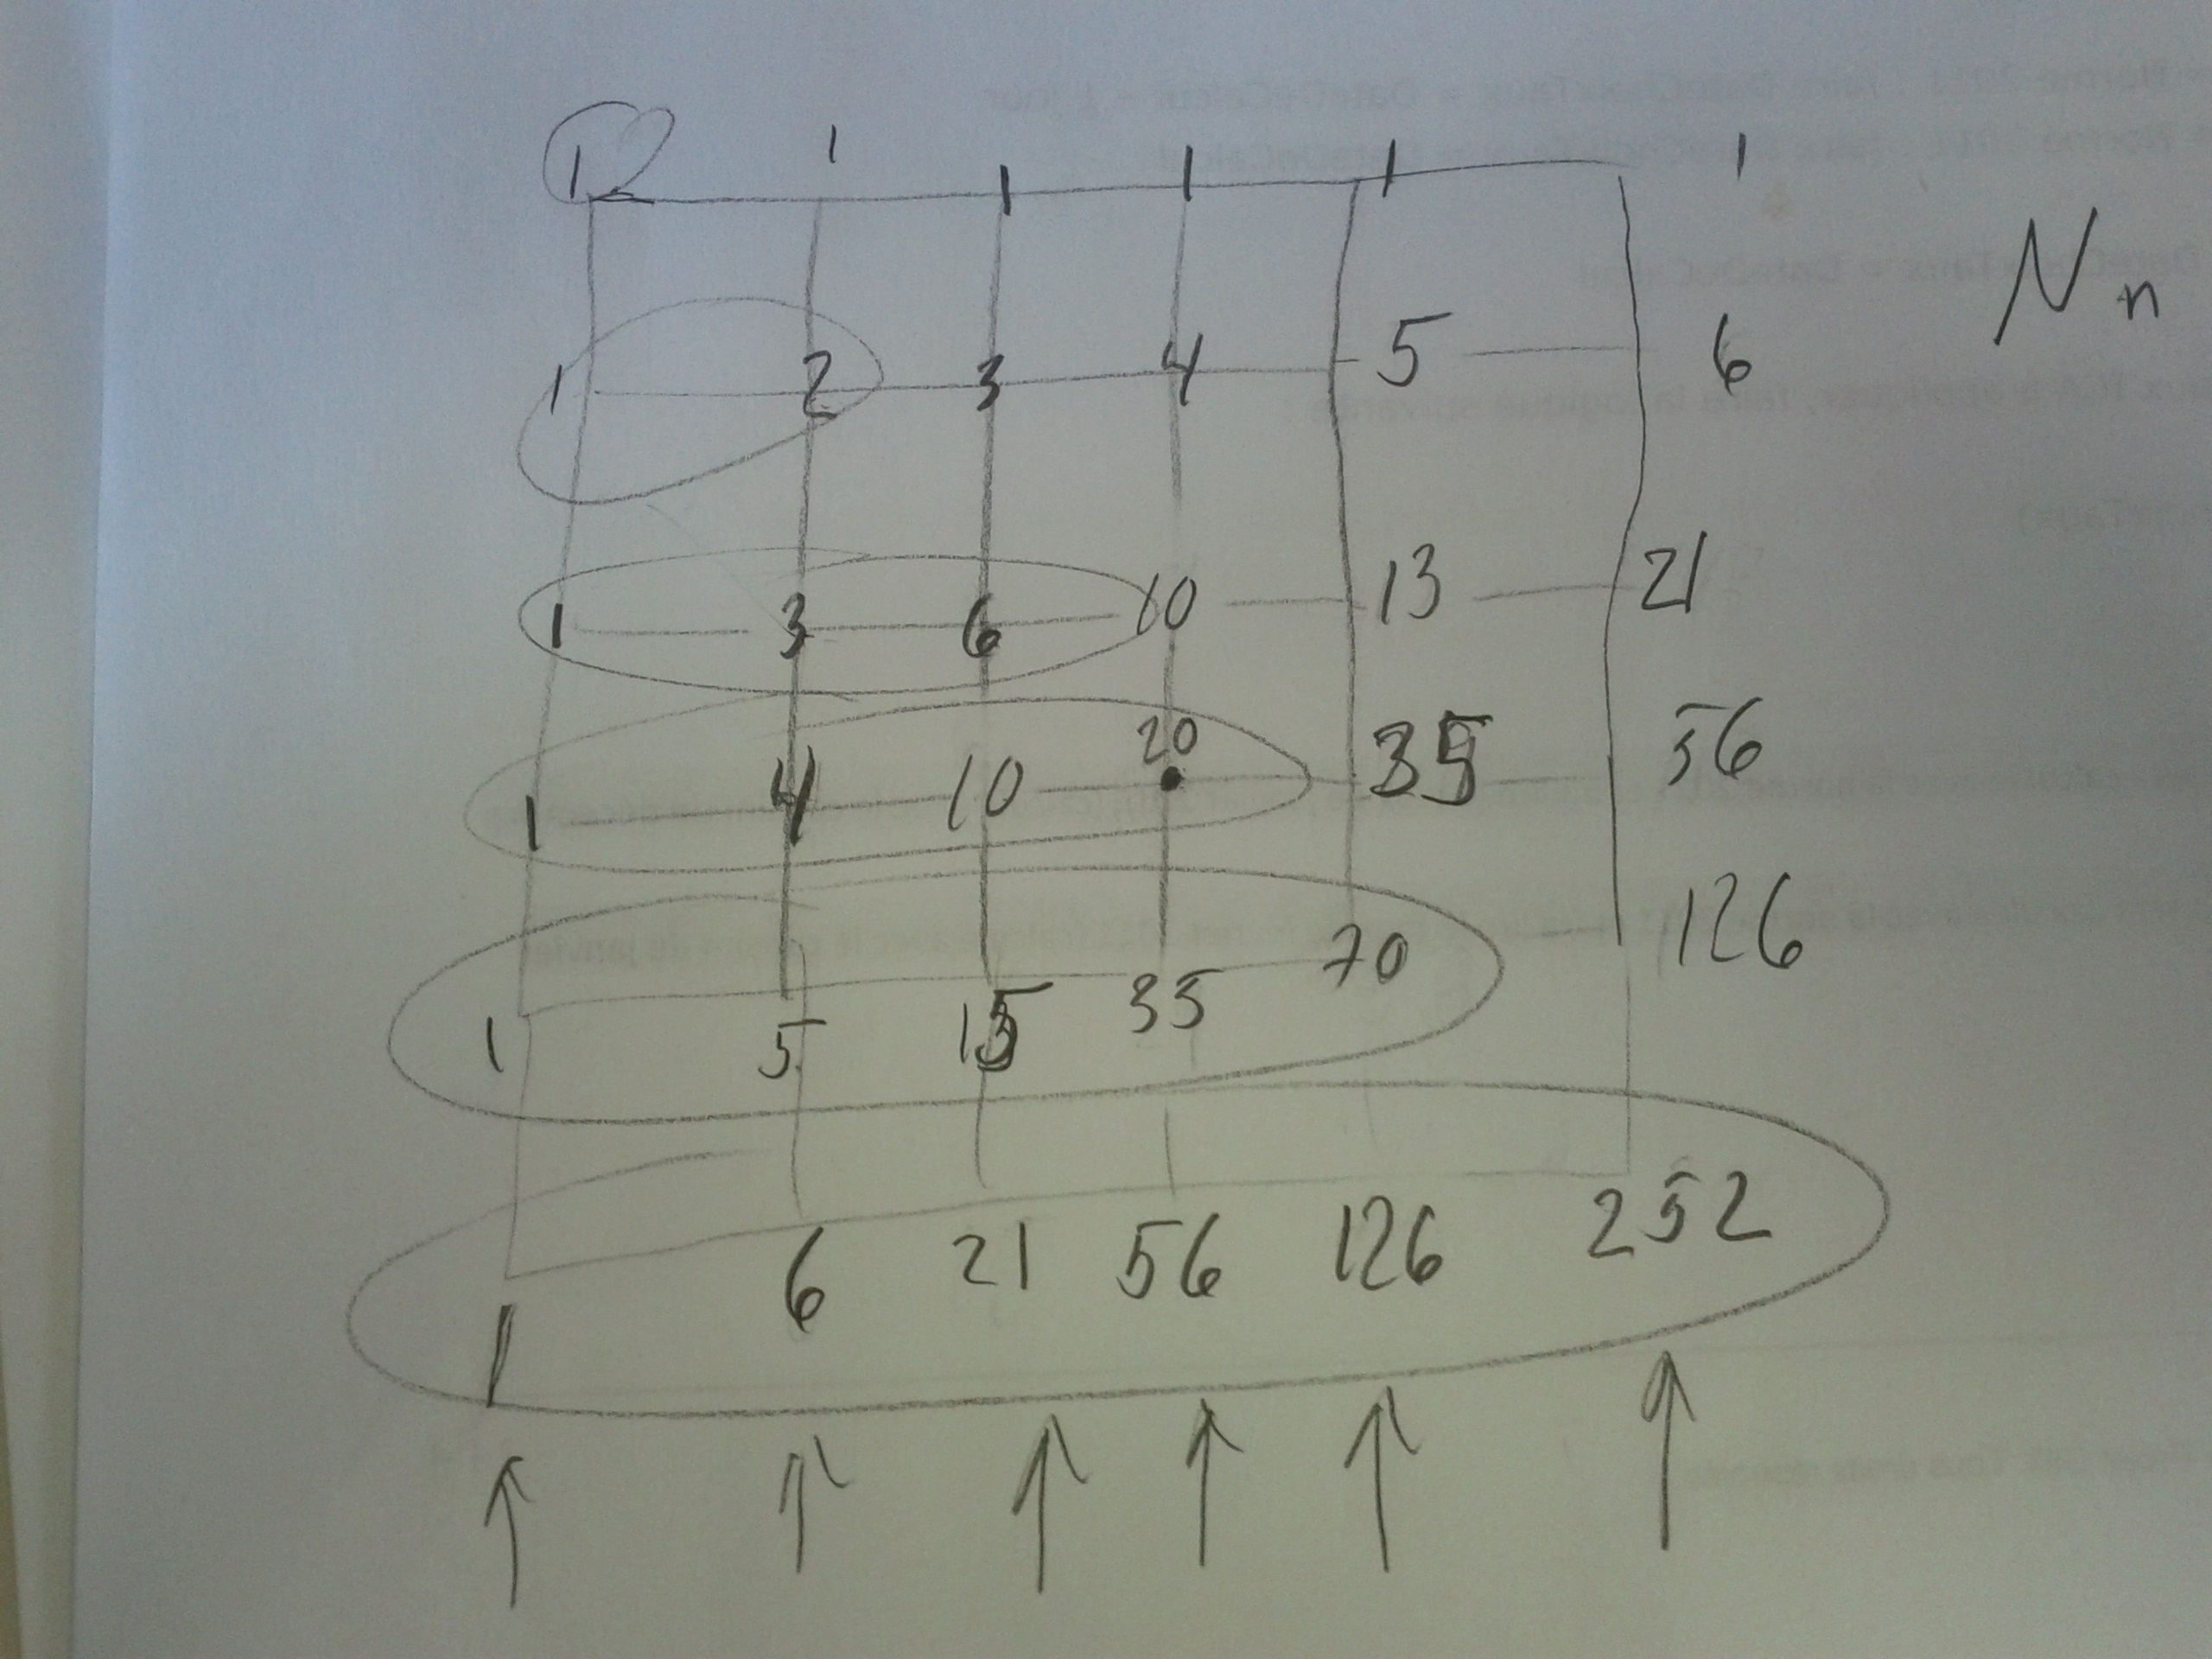 1 1 1 1 1 1
N n
1 2 3 4 5 6
1 3 6 10 13 21
1 4 10 20 35 56
1 5 15 35 70 126
1 6 21 56 126 252